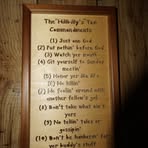 The "Hillbilly's" Ten
Commandments
(1) Just one God
(2) Put nothin' before God
(3) Watch yer mouth
(4) Git yourself to Sunday
meetin'
(5) Honor yer Ma & Pa
(6) No killin'
(7) No foolin' around with
another fellow's gal
(8) Don't take what ain't
yers
(9) No tellin' tales or
gossipin'
(10) Don't be hankerin' for
yer buddy's stuff